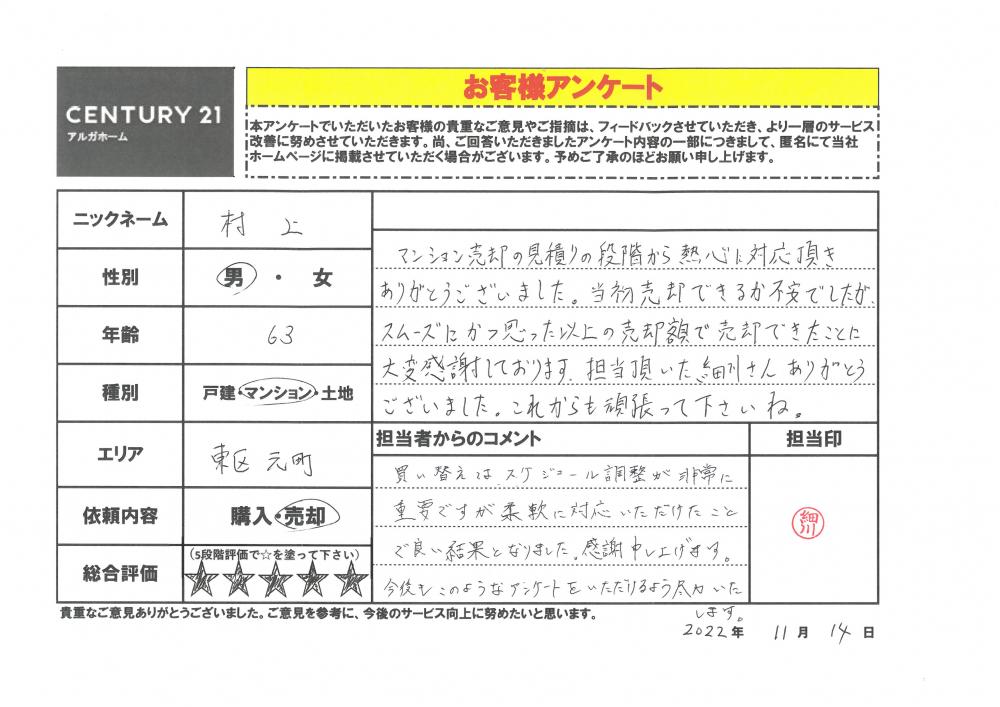 お客様アンケート
CENTURY 21
アルガホーム
本アンケートでいただいたお客様の貴重なご意見やご指摘は、フィードバックさせていただき、より一層のサービス
改善に努めさせていただきます。尚、ご回答いただきましたアンケート内容の一部につきまして、匿名にて当社
ホームページに掲載させていただく場合がございます。予めご了承のほどお願い申し上げます。
ニックネーム
村上
性別
男・女
年齢
63
種別
戸建・マンション・土地
エリア
東区 元町
依頼内容
購入・売却
総合評価
(5段階評価で☆を塗って下さい)
★★★★★
マンション売却の見積りの段階から熱心に対応頂き
ありがとうございました。当初売却できるか不安でしたが、
スムーズにかつ思った以上の売却額で売却できたことに
大変感謝しております。担当頂いた細川さんありがとう
ございました。これからも頑張って下さいね。
担当者からのコメント
買い替えはスケジュール調整が非常に
重要ですが柔軟に対応いただけたこと
で良い結果となりました。感謝申し上げます。
今後もこのようなアンケートをいただけるよう尽力いた
します。
担当印
細川
貴重なご意見ありがとうございました。ご意見を参考に、今後のサービス向上に努めたいと思います。
2022年 11月 14日